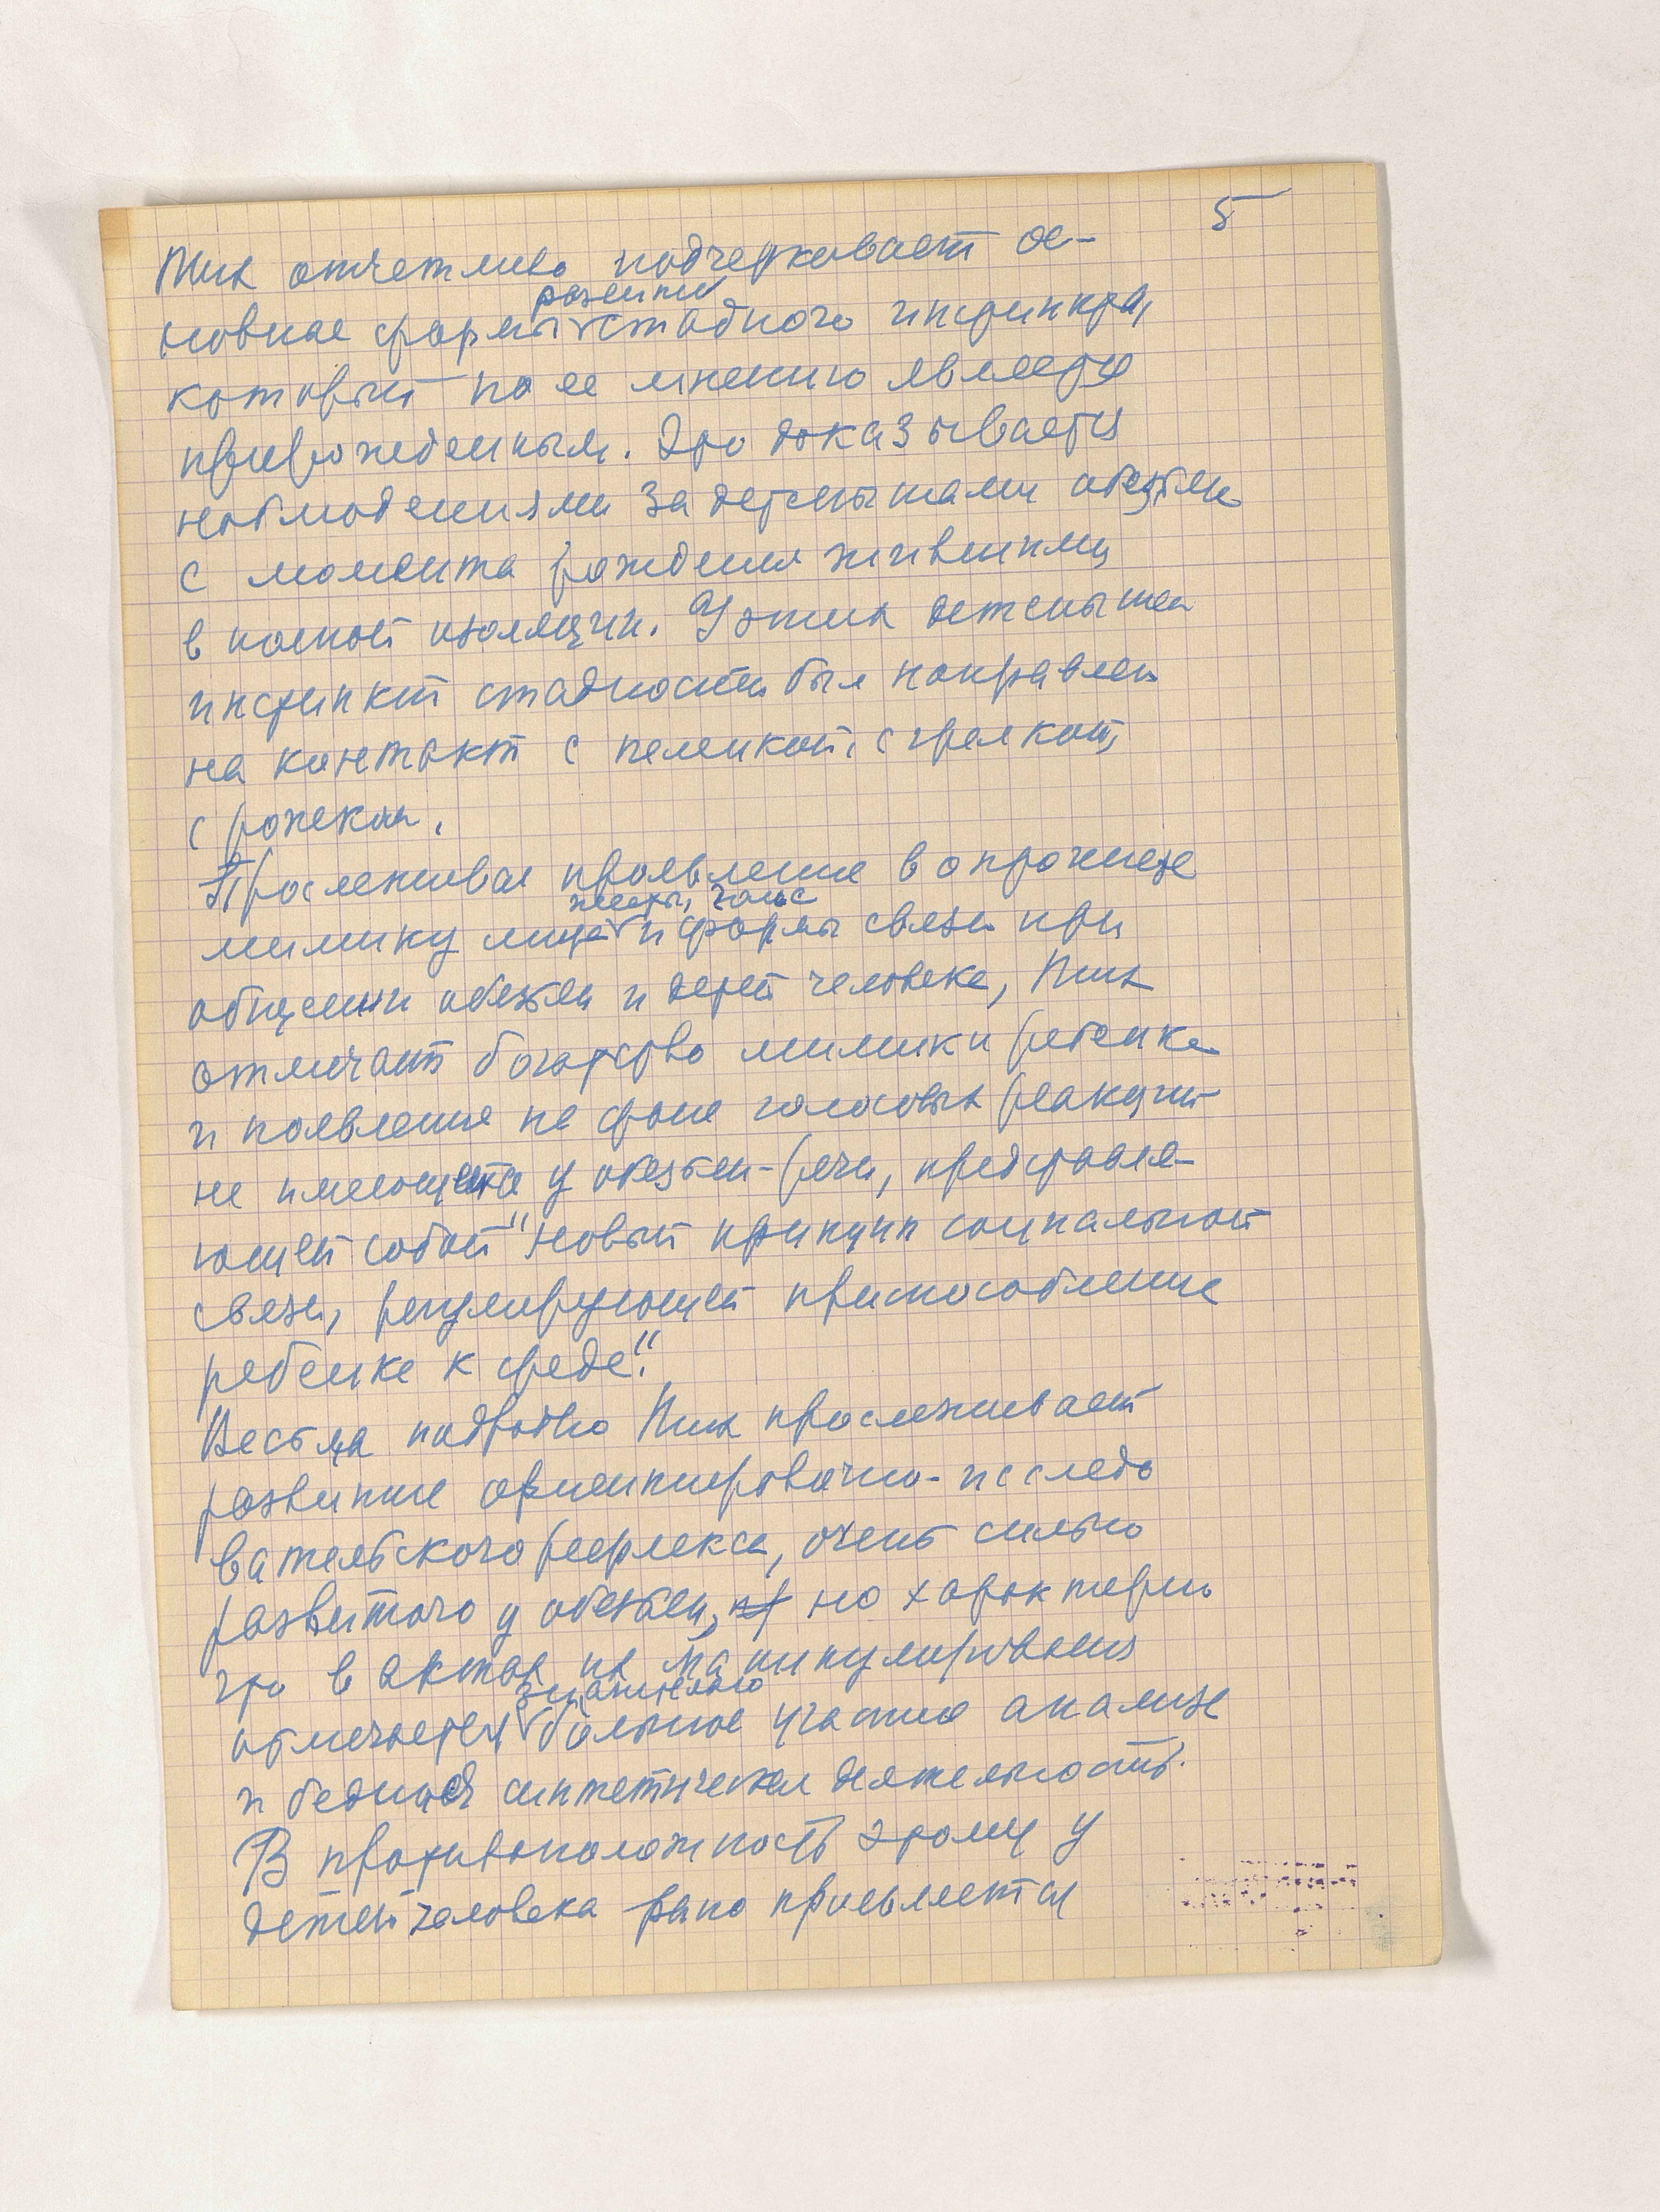 5
Пик отчетливо подчеркивает ос-
новные формы развития стадного инстинкта,
который по ее мнению является
прирожденным. Это доказывается
наблюдениями за детенышами обезьян
с момента рождения жившими
в полной изоляции. У этих детенышей
инстинкт стадности был направлен
на контакт с пеленкой, с грелкой,
с рожком.
Прослеживая проявление в онтогенезе
мимику лица жесты, голос и формы связи при
общении обезьян и детей человека, Пик
отмечает богатство мимики ребенка
и появление на фоне голосовых реакций
не имеющейся у обезьян - речи, представля-
ющей собой "новый принцип социальной
связи, регулирующей приспособление
ребенка к среде".
Весьма подробно Пик прослеживает
развитие ориентировочно-исследо
вательского рефлекса, очень сильно
развитого у обезьян, но характерно
что в актах их манипулирования
отмечается значительно большое участие анализа
и бедная синтетическая деятельность.
В противоположность этому у
детей человека рано проявляется